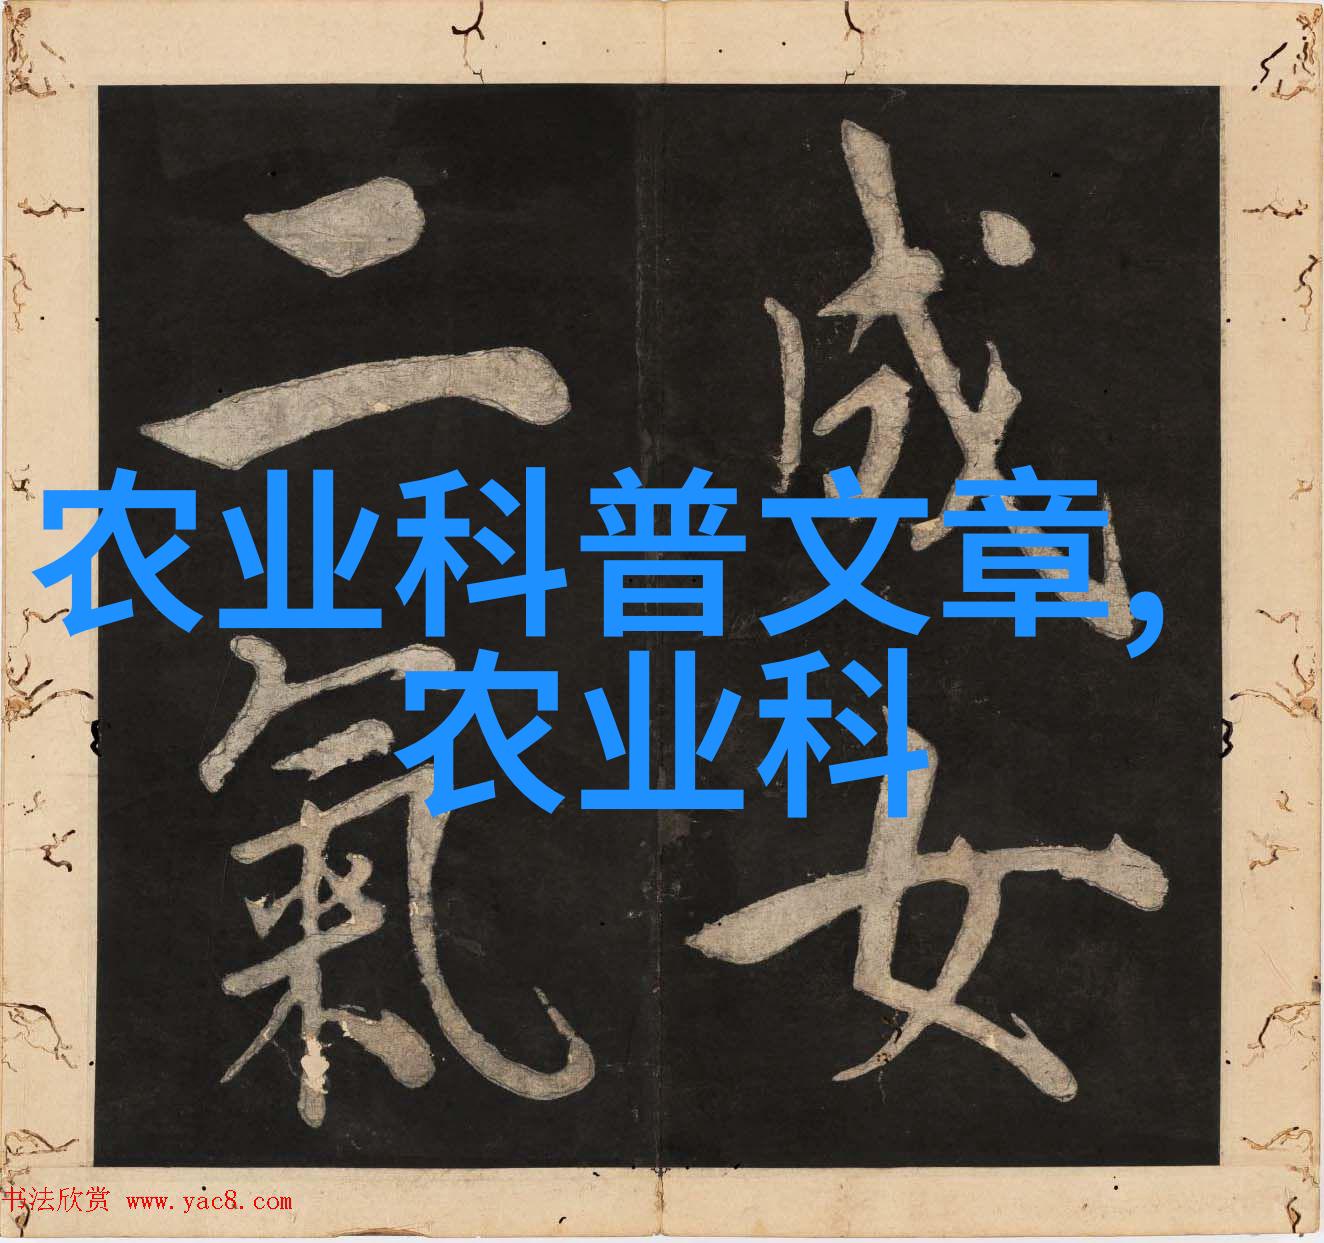 成女
二氣
农业科普文章,
农业科
书法欣赏 www.yac8.com